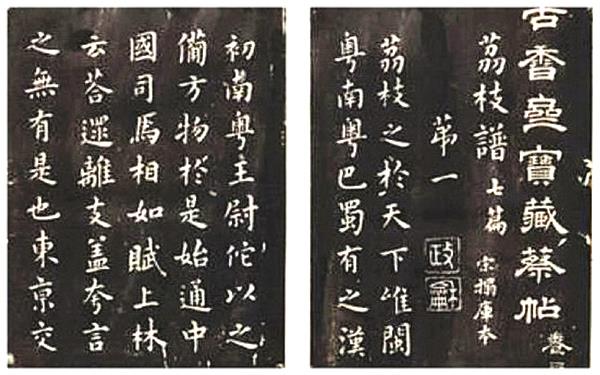 古香齋寶藏蔡帖 卷
荔枝譜 七篇 宋搨庫本
苐一
政龢
荔枝之於天下唯閩
粵南粵巴蜀有之漢
初南粵主尉佗以之
備方物於是始通中
國司馬相如賦上林
云荅遝離支蓋夸言
之無有是也東京交